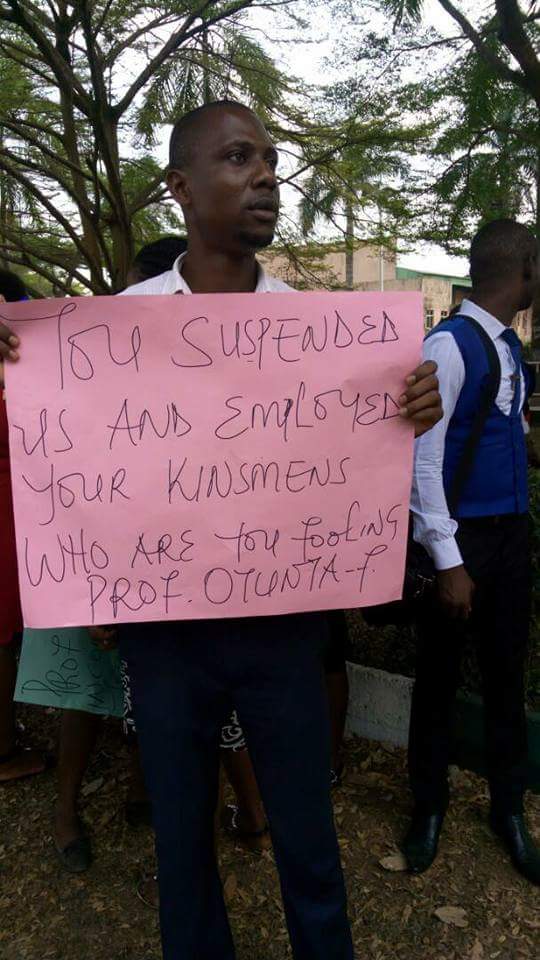 YOU SUSPENDED
US AND EMPLOYED
YOUR KINSMENS
WHO ARE YOU FOOLING
PROF. OTUNTA-F.
PROF